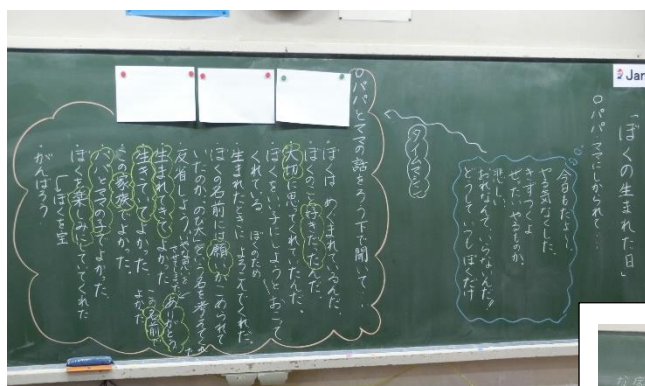 2 Jan
「ぼくの生まれた日」
○パパ、ママにしかられて…
今日もだよ…
やる気なくした。
きずつくよ
ぜったいやるものか。
悲しい
おれなんていらないんだ!!
どうして、いつもぼくだけ
タイムマシン
○パパとママの話をろう下で聞いて…
・ぼくは、めぐまれているんだ。
・ぼくのこと好きだったんだ。
・大切に思ってくれていたんだ。
・ぼくをいい子にしようとおこって
くれている ぼくのため
・生まれたときに、よろこんでくれた。
・ぼくの名前には願いがこめられて
いたのか。のび太という名を考えてくれた
・反省しよう。
ありがとう。
・生まれてきてよかった。
この名前でよかった
・生きていてよかった。
・この家族でよかった。
・パパとママの子でよかった。
・ぼくを楽しみにしていてくれた
・がんばろう…